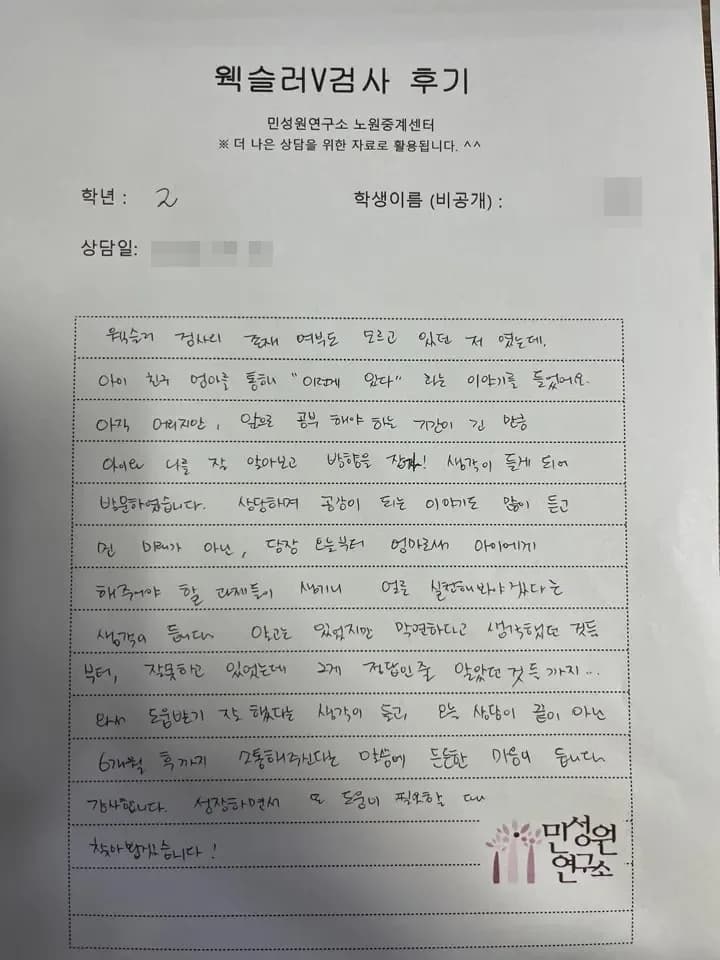 웩슬러V검사 후기
민성원연구소 노원중계센터
※ 더 나은 상담을 위한 자료로 활용됩니다. ^^
학년 : 2 학생이름 (비공개) :
상담일:
웩슬러 검사의 존재 여부도 모르고 있던 저 였는데,
아이 친구 엄마를 통해 "이런게 있다" 라는 이야기를 들었어요.
아직 어리지만, 앞으로 공부 해야 하는 기간이 긴 만큼
아이와 나를 잘 알아보고 방향을 잡자! 생각이 들게 되어
방문하였습니다. 상담하며 공감이 되는 이야기도 많이 듣고
먼 미래가 아닌, 당장 오늘부터 엄마로서 아이에게
해주어야 할 과제들이 생기니 얼른 실천해봐야겠다는
생각이 듭니다. 알고는 있었지만 막연하다고 생각했던 것들
부터, 잘못하고 있었는데 그게 정답인줄 알았던 것들 까지...
와서 도움받기 잘 했다는 생각이 들고, 오늘 상담이 끝이 아닌
6개월 후까지 소통해주신다는 말씀에 든든한 마음이 듭니다.
감사합니다. 성장하면서 또 도움이 필요할 때
찾아뵙겠습니다!
민성원
연구소